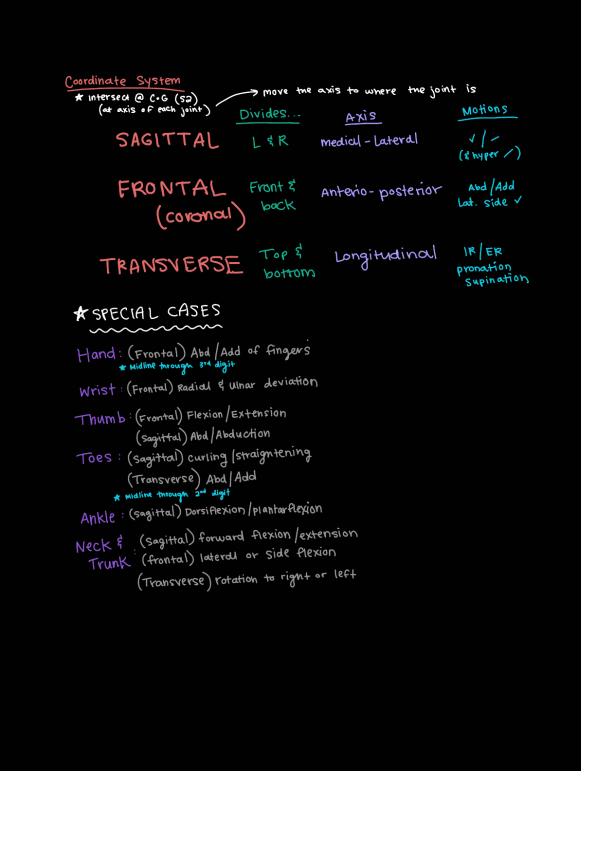 Coordinate System
★ intersect @ C.O.G (S2)
(at axis of each joint)
move the axis to where the joint is
Divides... Axis Motions
SAGITTAL L & R medical-Lateral ✓ / -
(& hyper /)
FRONTAL Front & Anterio-posterior Abd/Add
(coronal) back Lat. side ✓
TRANSVERSE Top & Longitudinal IR/ER
bottom pronation
supination
★ SPECIAL CASES
Hand: (Frontal) Abd/Add of fingers
★ Midline through 3rd digit
Wrist: (Frontal) Radial & Ulnar deviation
Thumb: (Frontal) Flexion/Extension
(Sagittal) Abd/Abduction
Toes: (Sagittal) curling/straigntening
(Transverse) Abd/Add
★ Midline through 2nd digit
Ankle: (Sagittal) Dorsiflexion/plantarflexion
Neck & : (Sagittal) forward flexion/extension
Trunk (frontal) lateral or side flexion
(Transverse) rotation to right or left